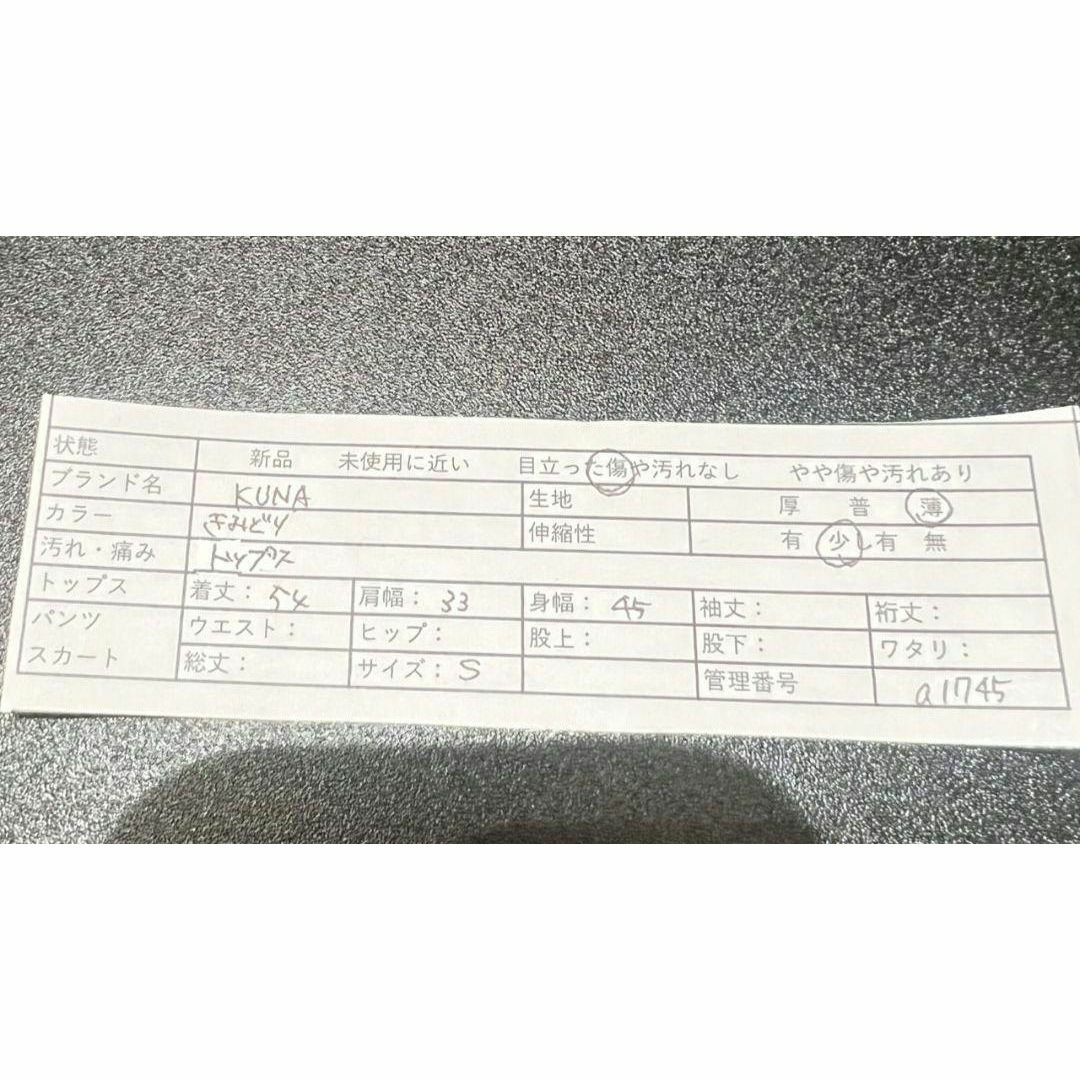 状態 新品 未使用に近い 目立った傷や汚れなし やや傷や汚れあり
ブランド名 KUNA 生地 厚 普 薄
カラー きみどり 伸縮性 有 少し有 無
汚れ・痛み トップス
トップス 着丈：54 肩幅：33 身幅：45 袖丈： 裄丈：
パンツ ウエスト： ヒップ： 股上： 股下： ワタリ：
スカート 総丈： サイズ：S 管理番号 a1745